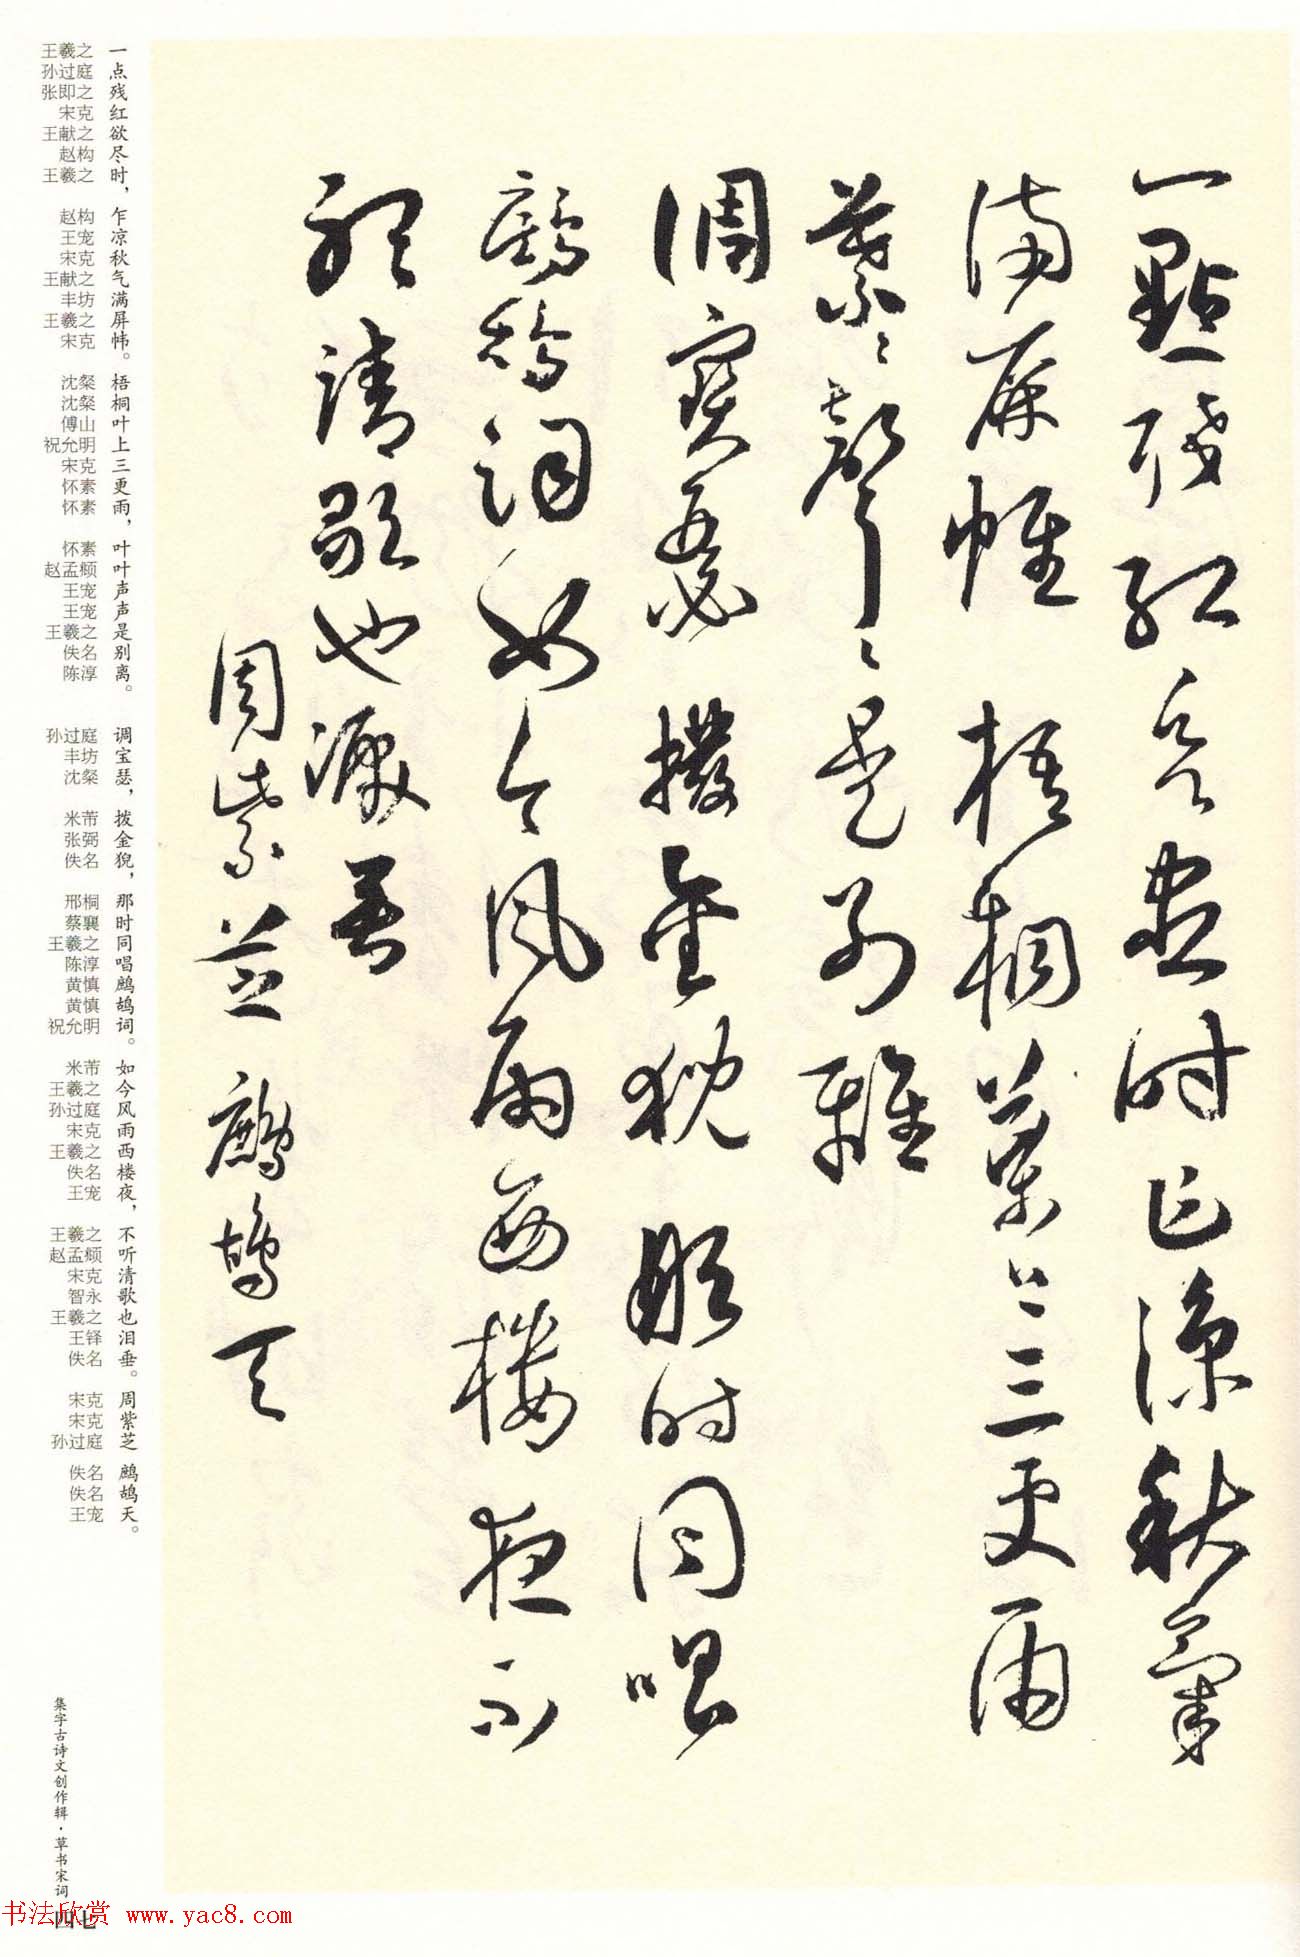 一點殘紅欲盡時乍涼秋氣
滿屏幃梧桐葉上三更雨
葉〻聲〻是別離
調寶瑟撥金猊那時同唱
鷓鴣詞如今風雨西樓夜不
聽清歌也淚垂
周紫芝鷓鴣天
一点残红欲尽时，乍凉秋气满屏帏。梧桐叶上三更雨，叶叶声声是别离。调宝瑟，拨金猊，那时同唱鹧鸪词。如今风雨西楼夜，不听清歌也泪垂。周紫芝 鹧鸪天。
王羲之 孙过庭 张即之 宋克 王献之 赵构 王羲之 赵构 王宠 宋克 王献之 丰坊 王羲之 宋克 沈粲 沈粲 傅山 祝允明 宋克 怀素 怀素 怀素 赵孟頫 王宠 王宠 王羲之 佚名 陈淳 孙过庭 丰坊 沈粲 米芾 张弼 佚名 邢桐 蔡襄 王羲之 陈淳 黄慎 黄慎 祝允明 米芾 王羲之 孙过庭 宋克 王羲之 佚名 王宠 王羲之 赵孟頫 宋克 智永 王羲之 王铎 佚名 宋克 宋克 孙过庭 佚名 佚名 王宠
集字古诗文创作辑·草书宋词
四七
书法欣赏 www.yac8.com